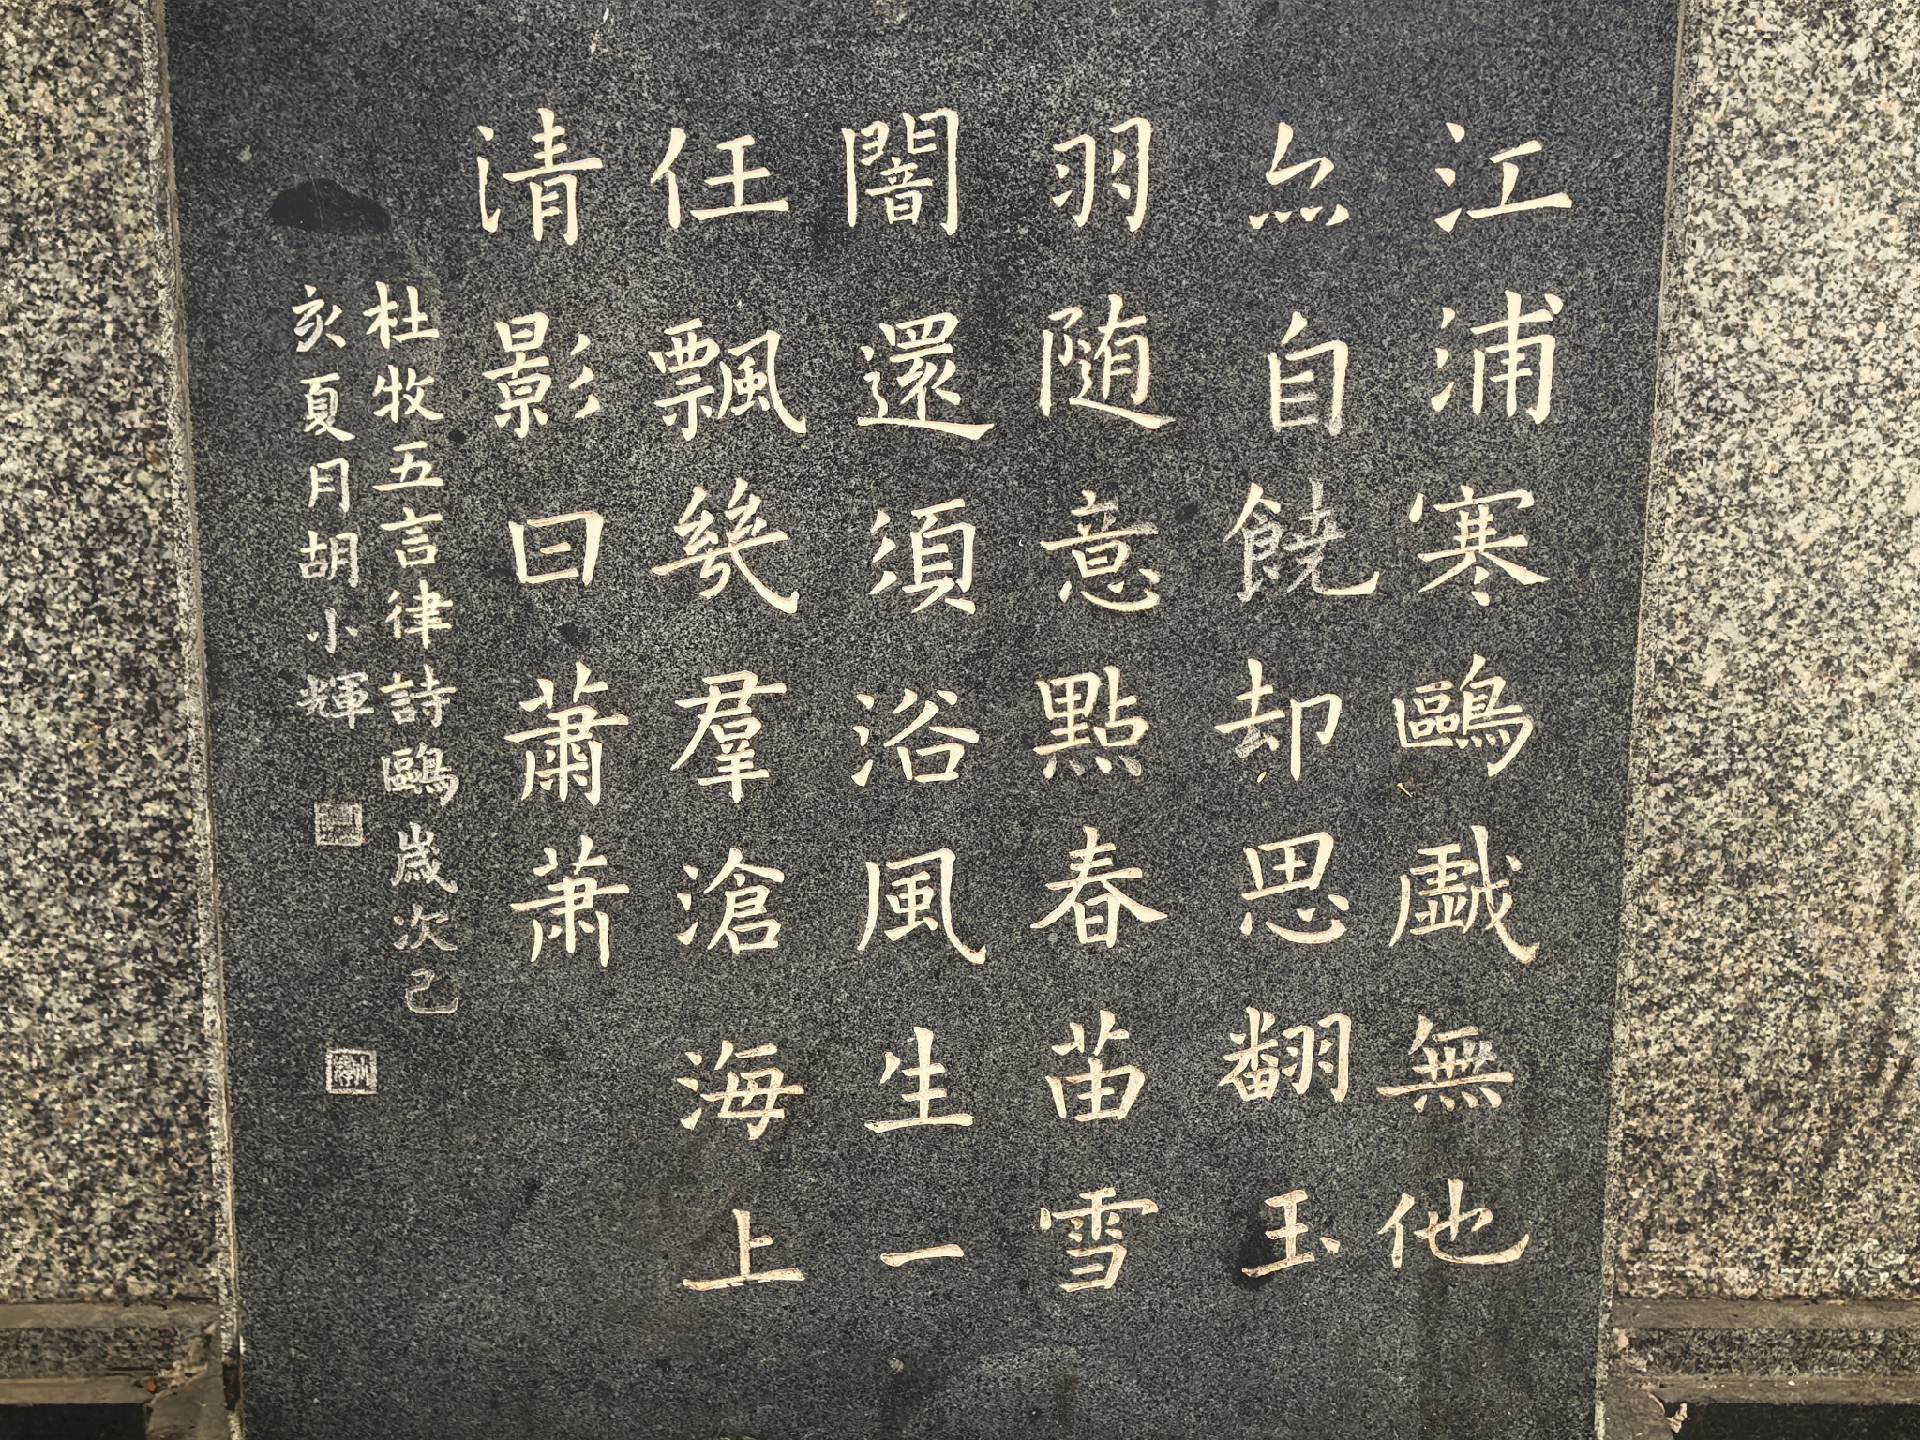 江浦寒鷗戲無他
亦自饒却思翻玉
羽随意點春苗雪
闇還須浴風生一
任飄幾羣滄海上
清影日蕭蕭
杜牧五言律詩鷗歲次己
亥夏月胡小輝